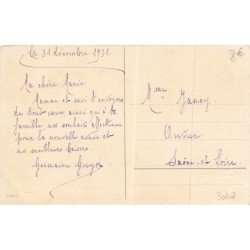 Le 31 décembre 1931.
Ma chère Marie
Maman et moi t'envoyons
de tout cœur, ainsi qu'à ta
famille, nos souhaits affectueux
pour la nouvelle année et
nos meilleurs baisers.
Germaine
Mme
Saône-et-Loire
8€